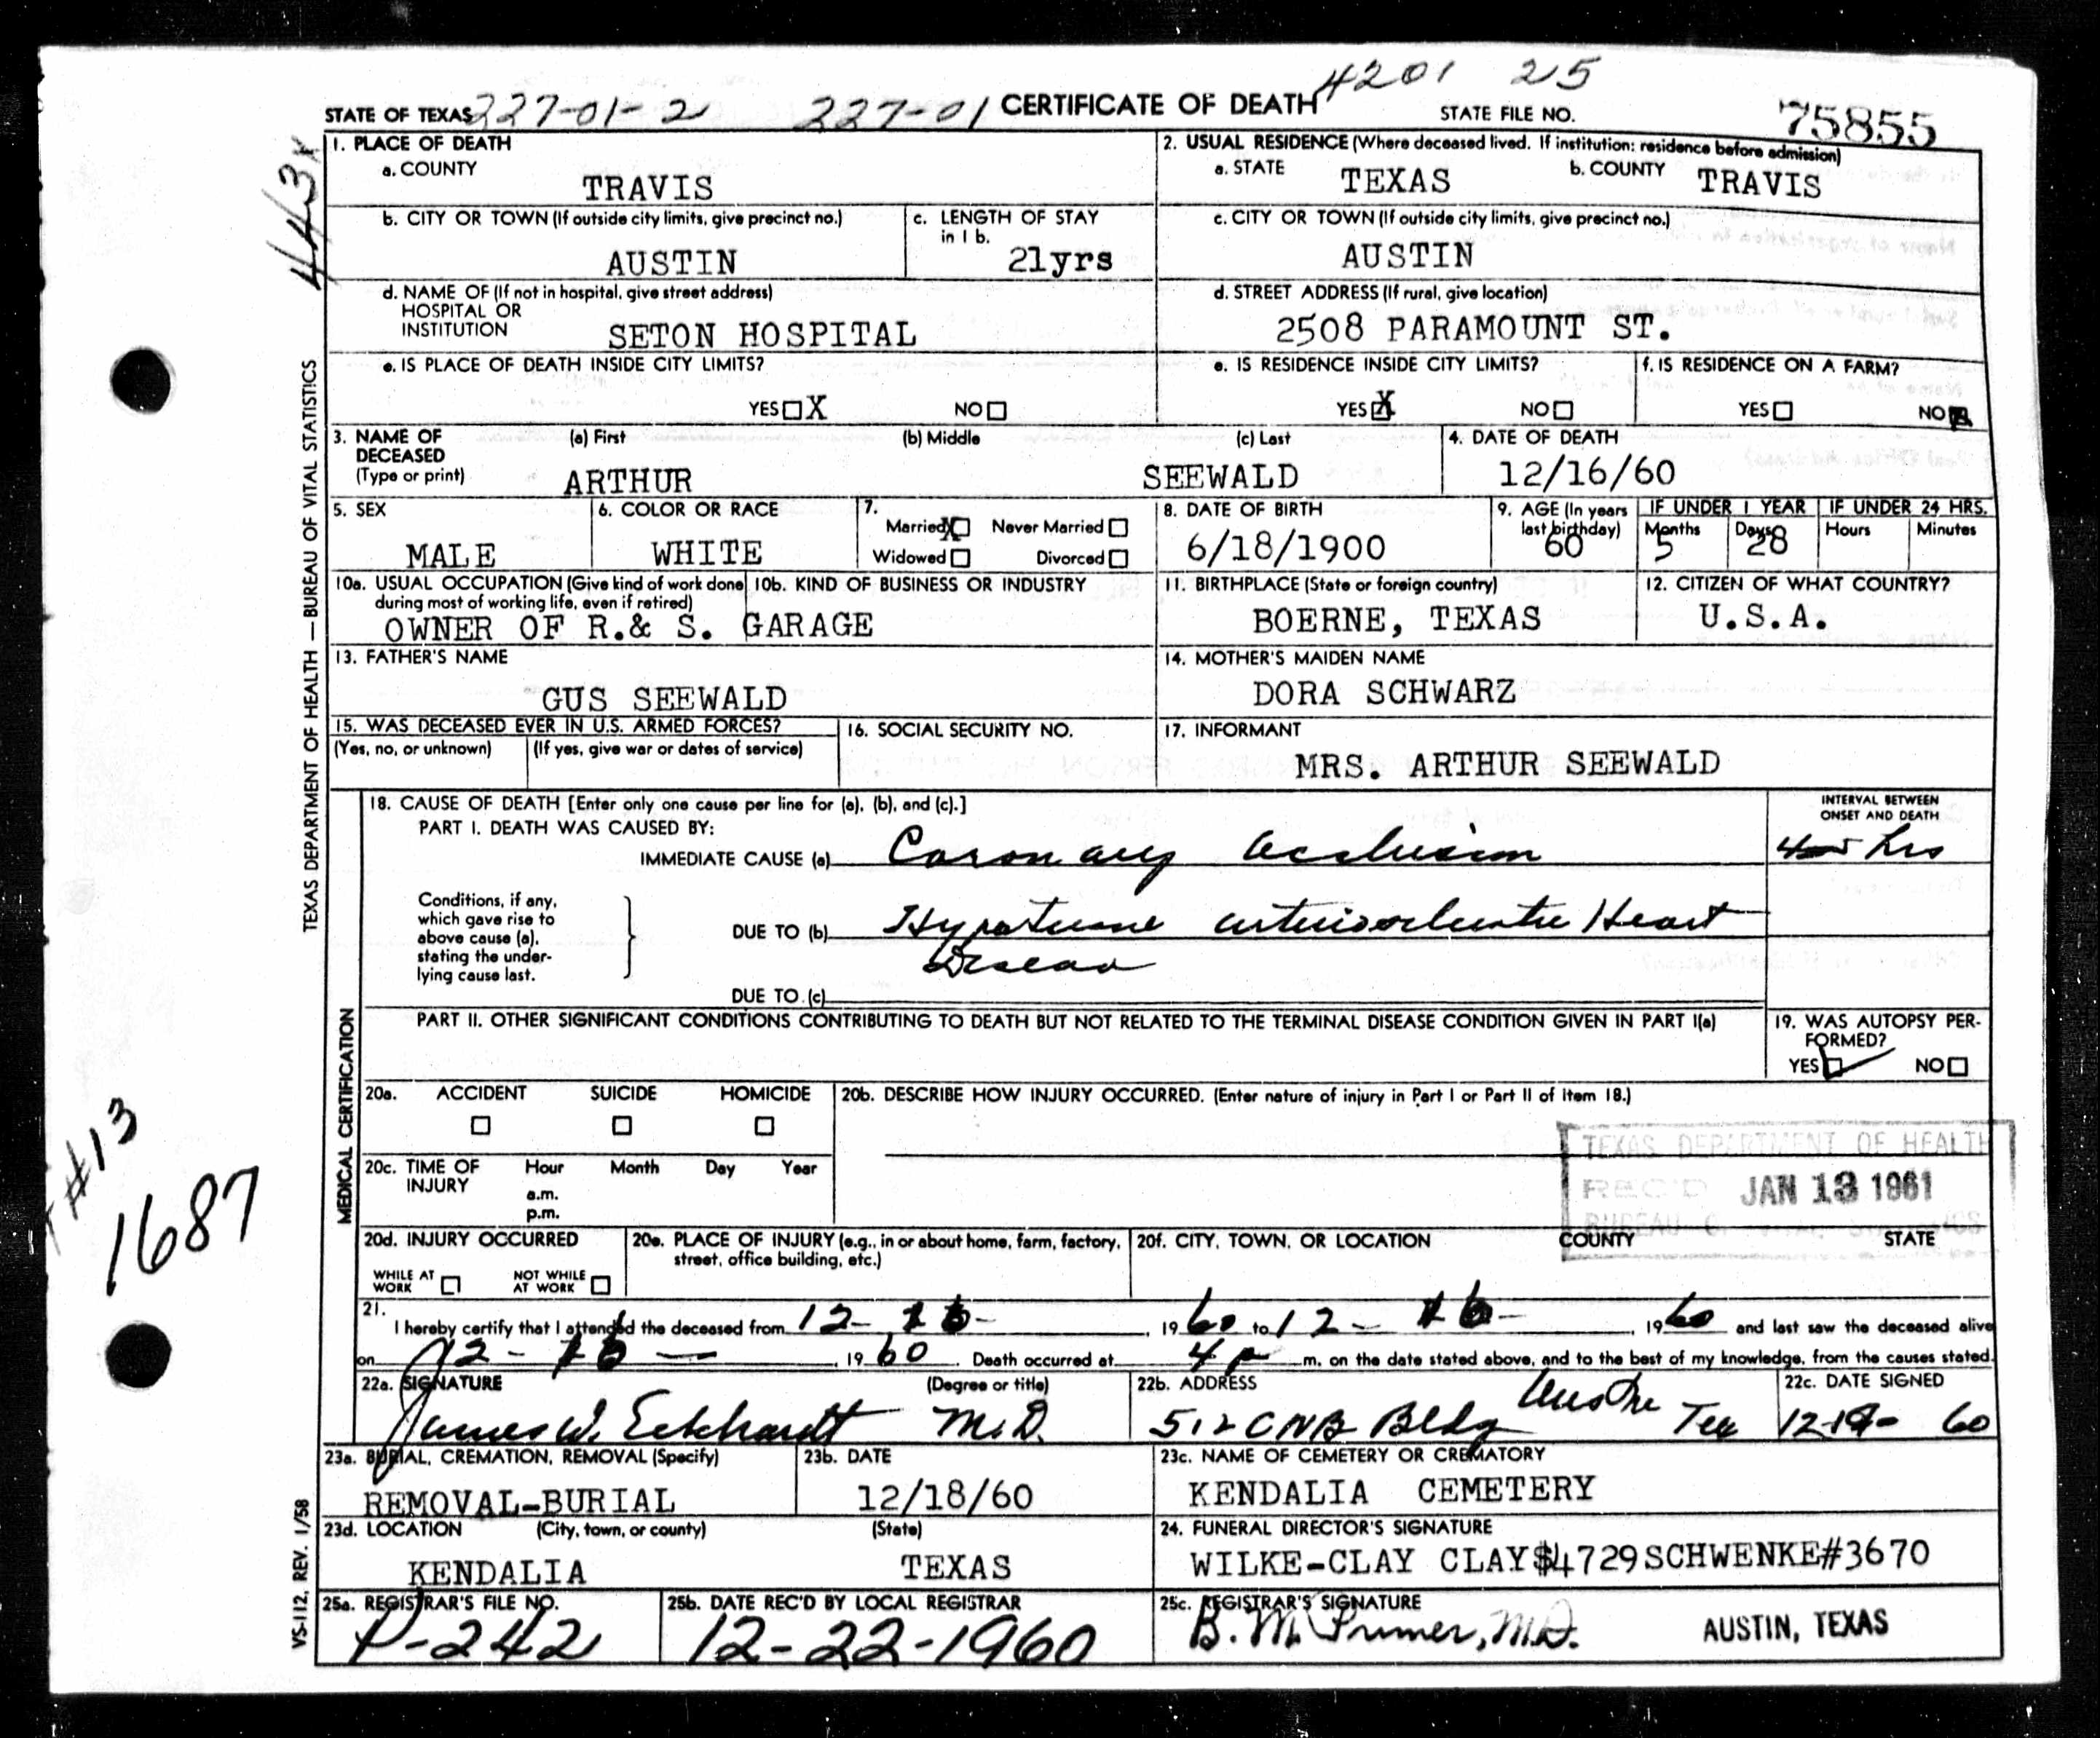 4201 25
STATE OF TEXAS 227-01-2 227-01 CERTIFICATE OF DEATH STATE FILE NO. 75855
443x
1. PLACE OF DEATH
a. COUNTY
TRAVIS
2. USUAL RESIDENCE (Where deceased lived. If institution: residence before admission)
a. STATE TEXAS b. COUNTY TRAVIS
b. CITY OR TOWN (If outside city limits, give precinct no.)
AUSTIN
c. LENGTH OF STAY
in 1 b.
21yrs
c. CITY OR TOWN (If outside city limits, give precinct no.)
AUSTIN
d. NAME OF (If not in hospital, give street address)
HOSPITAL OR
INSTITUTION SETON HOSPITAL
d. STREET ADDRESS (If rural, give location)
2508 PARAMOUNT ST.
e. IS PLACE OF DEATH INSIDE CITY LIMITS?
YES X NO
e. IS RESIDENCE INSIDE CITY LIMITS?
YES X NO
f. IS RESIDENCE ON A FARM?
YES NO X
3. NAME OF (a) First (b) Middle (c) Last
DECEASED
(Type or print) ARTHUR SEEWALD
4. DATE OF DEATH
12/16/60
5. SEX
MALE
6. COLOR OR RACE
WHITE
7.
Married X Never Married
Widowed Divorced
8. DATE OF BIRTH
6/18/1900
9. AGE (In years
last birthday)
60
IF UNDER 1 YEAR
Months Days
5 28
IF UNDER 24 HRS.
Hours Minutes
10a. USUAL OCCUPATION (Give kind of work done
during most of working life, even if retired)
10b. KIND OF BUSINESS OR INDUSTRY
OWNER OF R.& S. GARAGE
11. BIRTHPLACE (State or foreign country)
BOERNE, TEXAS
12. CITIZEN OF WHAT COUNTRY?
U.S.A.
13. FATHER'S NAME
GUS SEEWALD
14. MOTHER'S MAIDEN NAME
DORA SCHWARZ
15. WAS DECEASED EVER IN U.S. ARMED FORCES?
(Yes, no, or unknown) (If yes, give war or dates of service)
16. SOCIAL SECURITY NO.
17. INFORMANT
MRS. ARTHUR SEEWALD
TEXAS DEPARTMENT OF HEALTH — BUREAU OF VITAL STATISTICS
MEDICAL CERTIFICATION
18. CAUSE OF DEATH [Enter only one cause per line for (a), (b), and (c).]
PART I. DEATH WAS CAUSED BY:
IMMEDIATE CAUSE (a) Coronary Occlusion
INTERVAL BETWEEN
ONSET AND DEATH
hrs
Conditions, if any,
which gave rise to
above cause (a),
stating the under-
lying cause last.
DUE TO (b) Hypertensive arteriosclerotic Heart
Disease
DUE TO (c)
PART II. OTHER SIGNIFICANT CONDITIONS CONTRIBUTING TO DEATH BUT NOT RELATED TO THE TERMINAL DISEASE CONDITION GIVEN IN PART I(a)
19. WAS AUTOPSY PER-
FORMED?
YES ✓ NO
20a. ACCIDENT SUICIDE HOMICIDE
20b. DESCRIBE HOW INJURY OCCURRED. (Enter nature of injury in Part I or Part II of item 18.)
20c. TIME OF Hour Month Day Year
INJURY a.m.
p.m.
TEXAS DEPARTMENT OF HEALTH
REC'D JAN 13 1961
BUREAU OF VITAL STATISTICS
20d. INJURY OCCURRED
WHILE AT
WORK
NOT WHILE
AT WORK
20e. PLACE OF INJURY (e.g., in or about home, farm, factory,
street, office building, etc.)
20f. CITY, TOWN, OR LOCATION COUNTY STATE
21.
I hereby certify that I attended the deceased from 12- 16- , 1960 to 12- 16- , 1960 and last saw the deceased alive
on 12-16- , 1960. Death occurred at 4 p m. on the date stated above, and to the best of my knowledge, from the causes stated.
22a. SIGNATURE (Degree or title)
James W. Eckhardt M.D.
22b. ADDRESS
512 CNB Bldg Austin Tex
22c. DATE SIGNED
12-19-60
23a. BURIAL, CREMATION, REMOVAL (Specify)
REMOVAL-BURIAL
23b. DATE
12/18/60
23c. NAME OF CEMETERY OR CREMATORY
KENDALIA CEMETERY
23d. LOCATION (City, town, or county) (State)
KENDALIA TEXAS
24. FUNERAL DIRECTOR'S SIGNATURE
WILKE-CLAY CLAY$4729 SCHWENKE#3670
25a. REGISTRAR'S FILE NO.
P-242
25b. DATE REC'D BY LOCAL REGISTRAR
12-22-1960
25c. REGISTRAR'S SIGNATURE
B. M. Primer, M.D. AUSTIN, TEXAS
VS-112, REV. 1/58
#13
1687